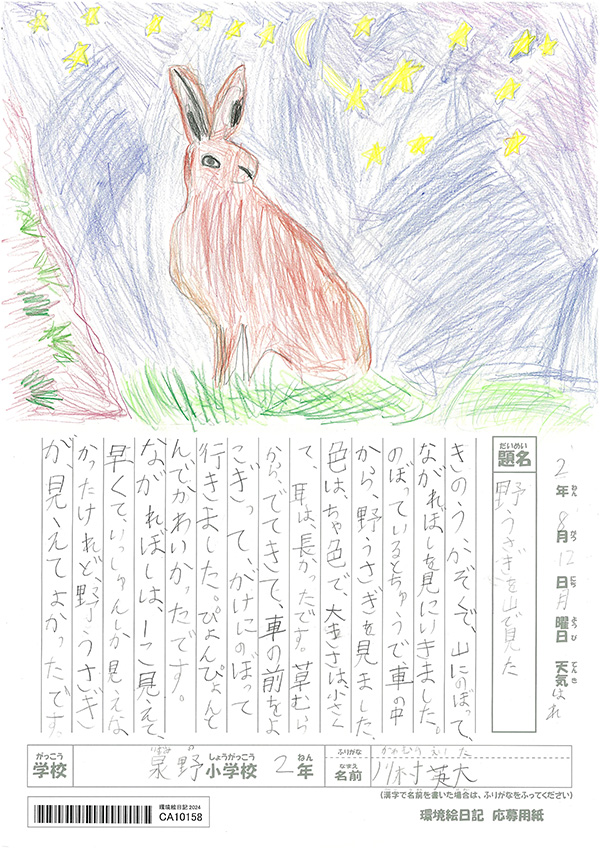 2年 8月 12日 月曜日 天気 はれ
ねん がつ にち よう び てん き
だいめい
題名
野うさぎを山で見た
きのう、かぞくで、山にのぼって、
ながれぼしを見にいきました。
のぼっているとちゅうで車の中
から、野うさぎを見ました。
色は、ちゃ色で、大きさは小さく
て、耳は、長かったです。草むら
から、でてきて、車の前をよ
こぎって、がけにのぼって
行きました。ぴょんぴょんと
んでかわいかったです。
ながれぼしは、一こ見えて、
早くて、いっしゅんしか見えな
かったけれど、野うさぎ
が、見えてよかったです。
がっこう
学校
泉野 小学校 2年
しょうがっこう ねん
ふりがな
なまえ
名前
川村英大
(漢字で名前を書いた場合は、ふりがなをふってください)
環境絵日記2024
CA10158
環境絵日記 応募用紙